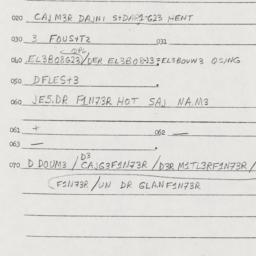 020 CAJ M3R DAJNI S+DAR1G23 HENT
030 3 FOUS+T2 031
2PL
040 EL3BO8G23/DER EL3BO8J23;EL3BOUW3 OSING
050 DFLES+3
060 JES.DR F1N73R HOT SAJ NA.M3
061 + 062 —
063 —
070 D DOUM3/CAJG3F1N73R/D3R M1TL3RF1N73R/
D3
F1N73R/UN DR GLANF1N73R